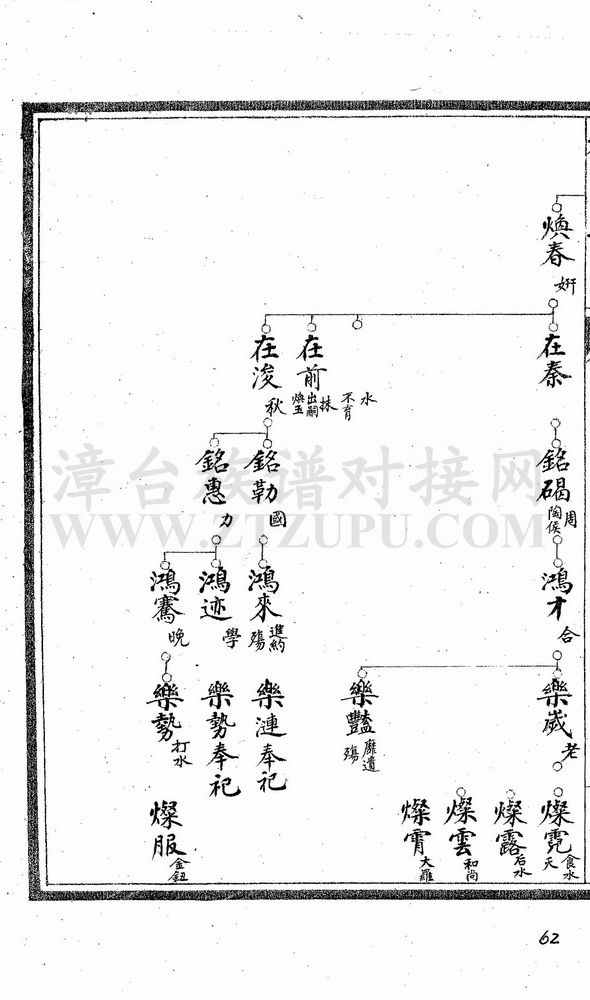 煥春 妍
在秦
水 不育
在前 抹 出嗣 煥玉
在浚 秋
銘碣 周 陶侯
銘勒 國
銘惠 力
鴻才 合
鴻來 進約 殤
鴻迹 學
鴻騫 晚
樂崴 老
樂豔 靡遺 殤
樂漣奉祀
樂勢奉祀
樂勢 打水
燦霓 食水 天
燦露 石水
燦雲 和尚
燦霄 大羅
燦服 金鈕
漳台族谱对接网
WWW.ZTZUPU.COM
62